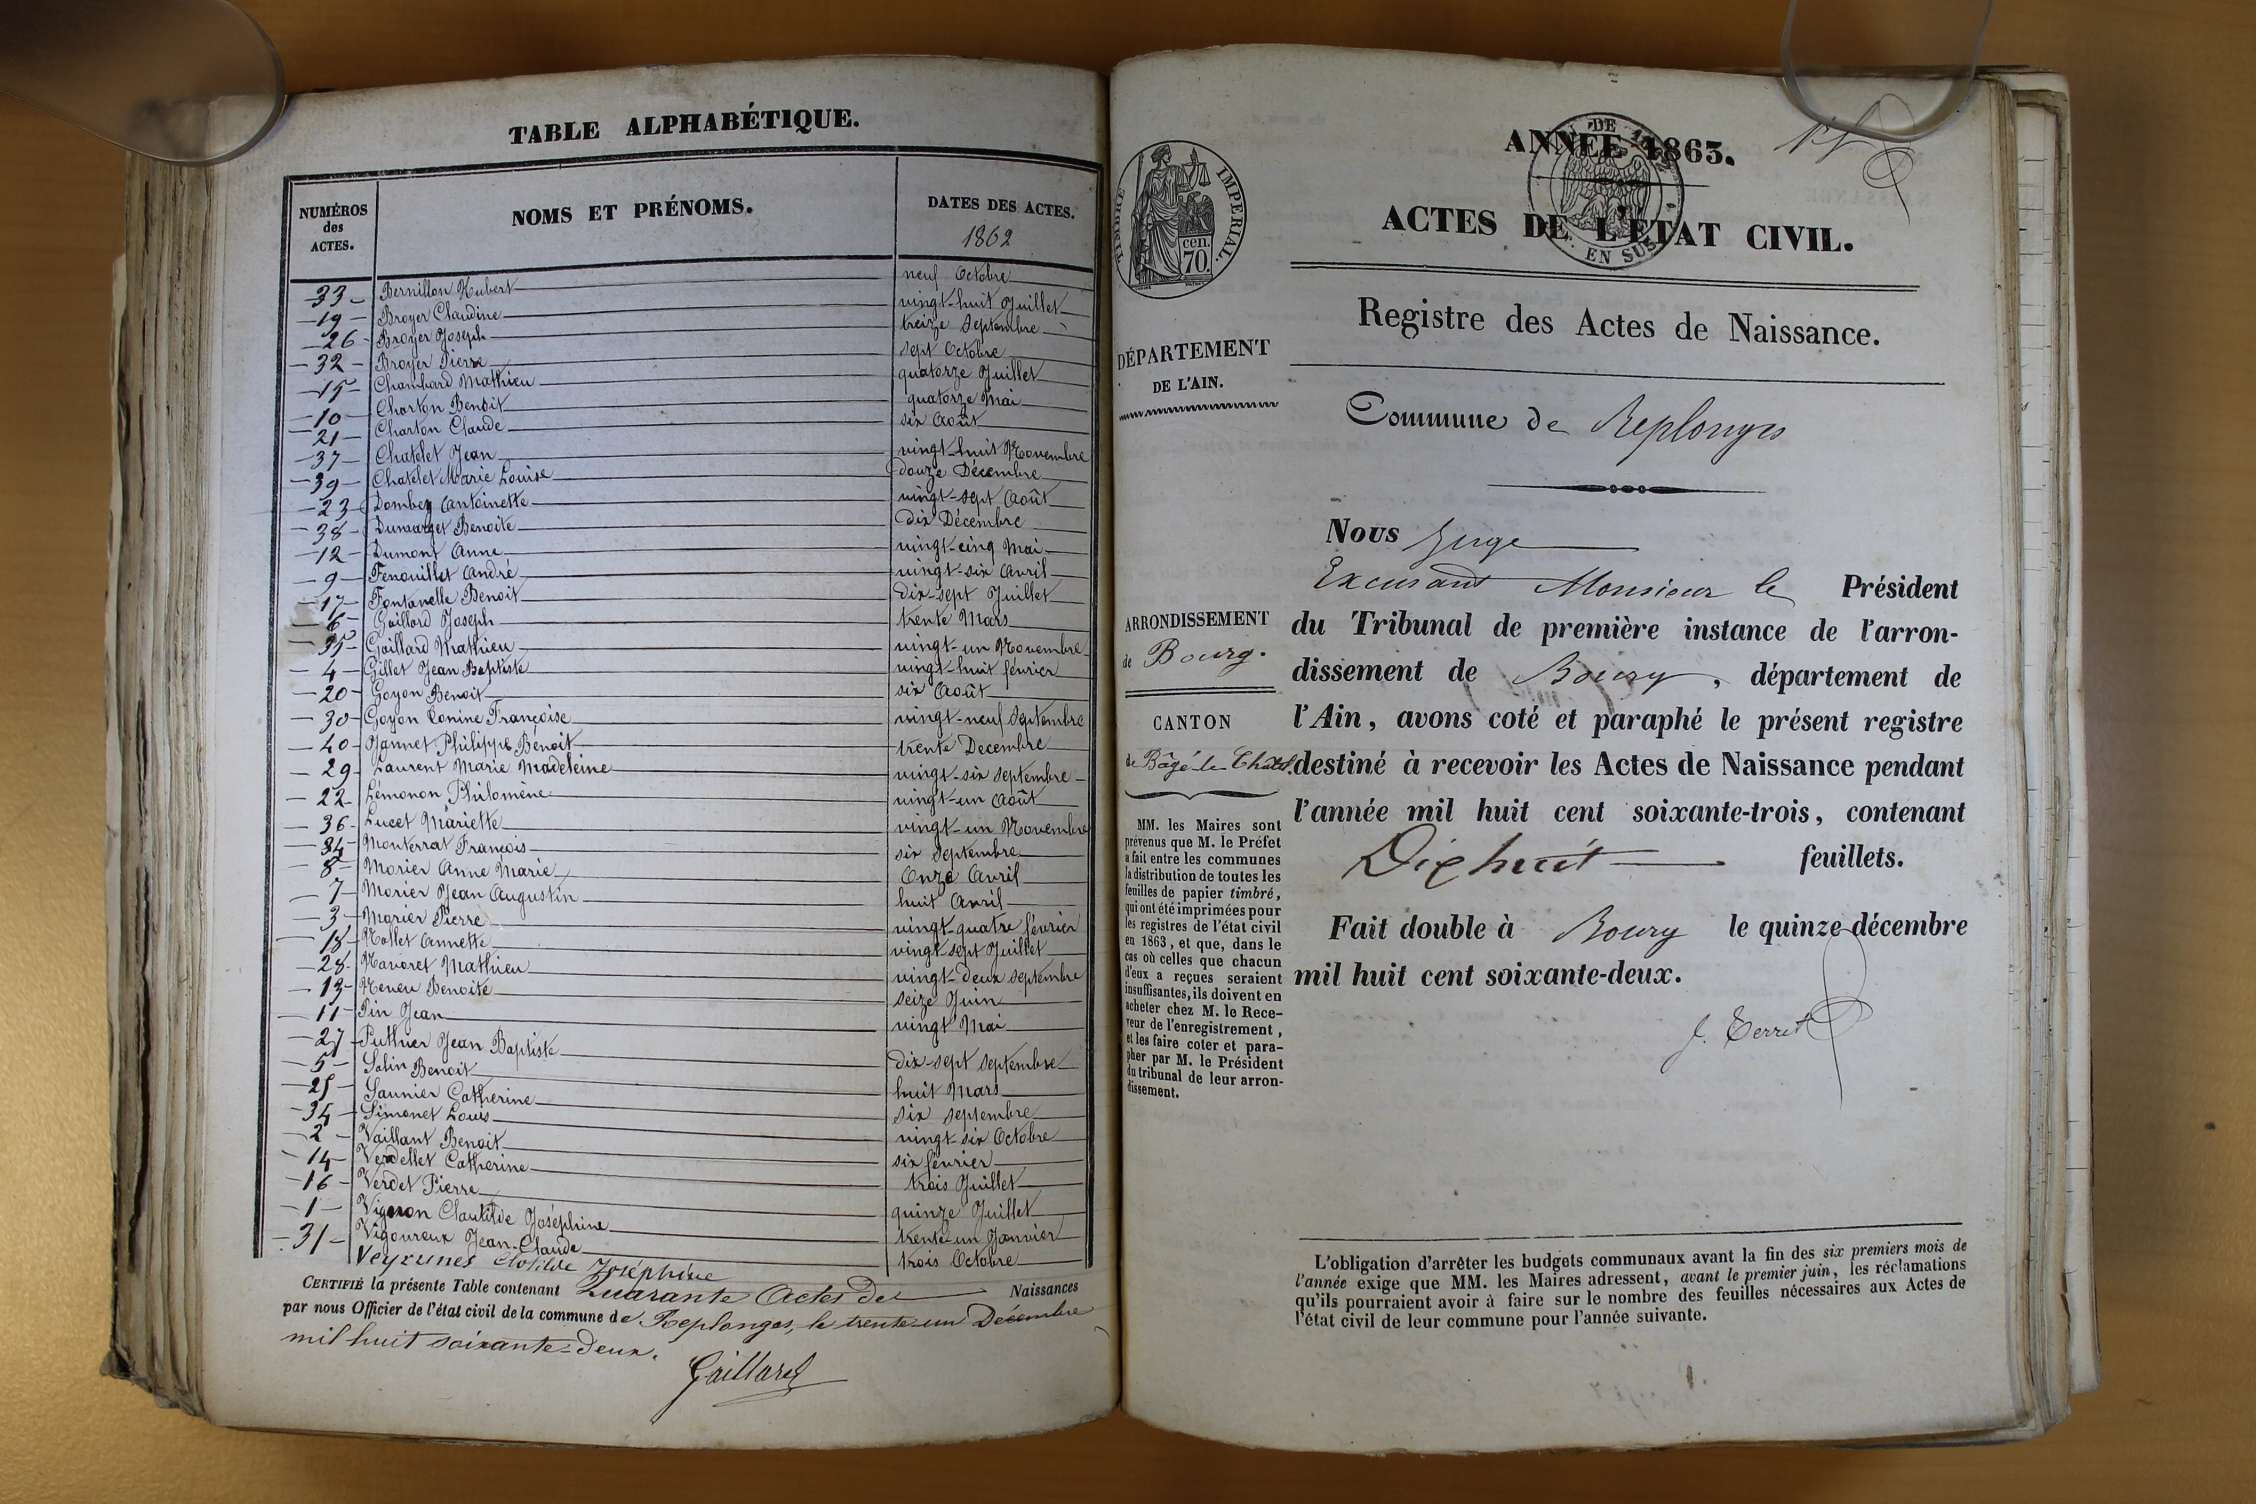 TABLE ALPHABÉTIQUE.
NUMÉROS des ACTES. NOMS ET PRÉNOMS. DATES DES ACTES.
1862
33 Bernillon Hubert neuf Octobre
19 Broyer Claudine vingt-huit Juillet
26 Broyer Joseph treize Septembre
32 Broyer Pierre sept Octobre
15 Chambard Mathieu quatorze Juillet
10 Charton Benoit quatorze Mai
21 Charton Claude six Août
37 Chatelet Jean vingt-huit Novembre
39 Chatelet Marie Louise douze Décembre
23 Dombey Antoinette vingt-sept Août
38 Dumarget Benoite dix Décembre
12 Dumont Anne vingt-cinq Mai
9 Fenouillet André vingt-six Avril
17 Fontanelle Benoit dix-sept Juillet
6 Gaillard Joseph trente Mars
35 Gaillard Mathieu vingt-un Novembre
4 Gillet Jean Baptiste vingt-huit février
20 Goyon Benoit six Août
30 Goyon Françoise vingt-neuf Septembre
40 Jannet Philippe Benoit trente Decembre
29 Laurent Marie Madeleine vingt-six septembre
22 Lémonon Philomène vingt-un Août
36 Lucet Mariette vingt-un Novembre
34 Monterrat François six septembre
8 Morier Anne Marie Onze Avril
7 Morier Jean Augustin huit Avril
3 Morier Pierre vingt-quatre février
18 Nallet Annette vingt-sept Juillet
28 Navoret Mathieu vingt-deux septembre
13 Neveu Benoite seize Juin
11 Pin Jean vingt Mai
27 Puthier Jean Baptiste dix-sept septembre
5 Salin Benoit huit Mars
25 Saunier Catherine six septembre
34 Simonet Louis vingt-six Octobre
2 Vaillant Benoit six février
14 Verdellet Catherine trois Juillet
16 Verdet Pierre quinze Juillet
1 Vigoron Clautilde Joséphine trente-un Janvier
31 Vigoureux Jean-Claude trois Octobre
Veyrunes Clotilde Joséphine
CERTIFIÉ la présente Table contenant Quarante Actes de Naissances
par nous Officier de l'état civil de la commune de Replonges, le trente-un Décembre
mil huit soixante-deux.
Gaillard
TIMBRE IMPÉRIAL.
cen.
70.
ANNÉE 1863.
ACTES DE L'ÉTAT CIVIL.
DE
EN SUS
Registre des Actes de Naissance.
DÉPARTEMENT
DE L'AIN.
Commune de Replonges
Nous Juge
Excusant Monsieur le Président
du Tribunal de première instance de l'arron-
dissement de Bourg, département de
l'Ain, avons coté et paraphé le présent registre
destiné à recevoir les Actes de Naissance pendant
l'année mil huit cent soixante-trois, contenant
Dix huit feuillets.
Fait double à Bourg le quinze décembre
mil huit cent soixante-deux.
J. Terret
ARRONDISSEMENT
de Bourg.
CANTON
de Bâgé-le-Châtel.
MM. les Maires sont
prévenus que M. le Préfet
a fait entre les communes
la distribution de toutes les
feuilles de papier timbré,
qui ont été imprimées pour
les registres de l'état civil
en 1863, et que, dans le
cas où celles que chacun
d'eux a reçues seraient
insuffisantes, ils doivent en
acheter chez M. le Rece-
veur de l'enregistrement,
et les faire coter et para-
pher par M. le Président
du tribunal de leur arron-
dissement.
L'obligation d'arrêter les budgets communaux avant la fin des six premiers mois de
l'année exige que MM. les Maires adressent, avant le premier juin, les réclamations
qu'ils pourraient avoir à faire sur le nombre des feuilles nécessaires aux Actes de
l'état civil de leur commune pour l'année suivante.